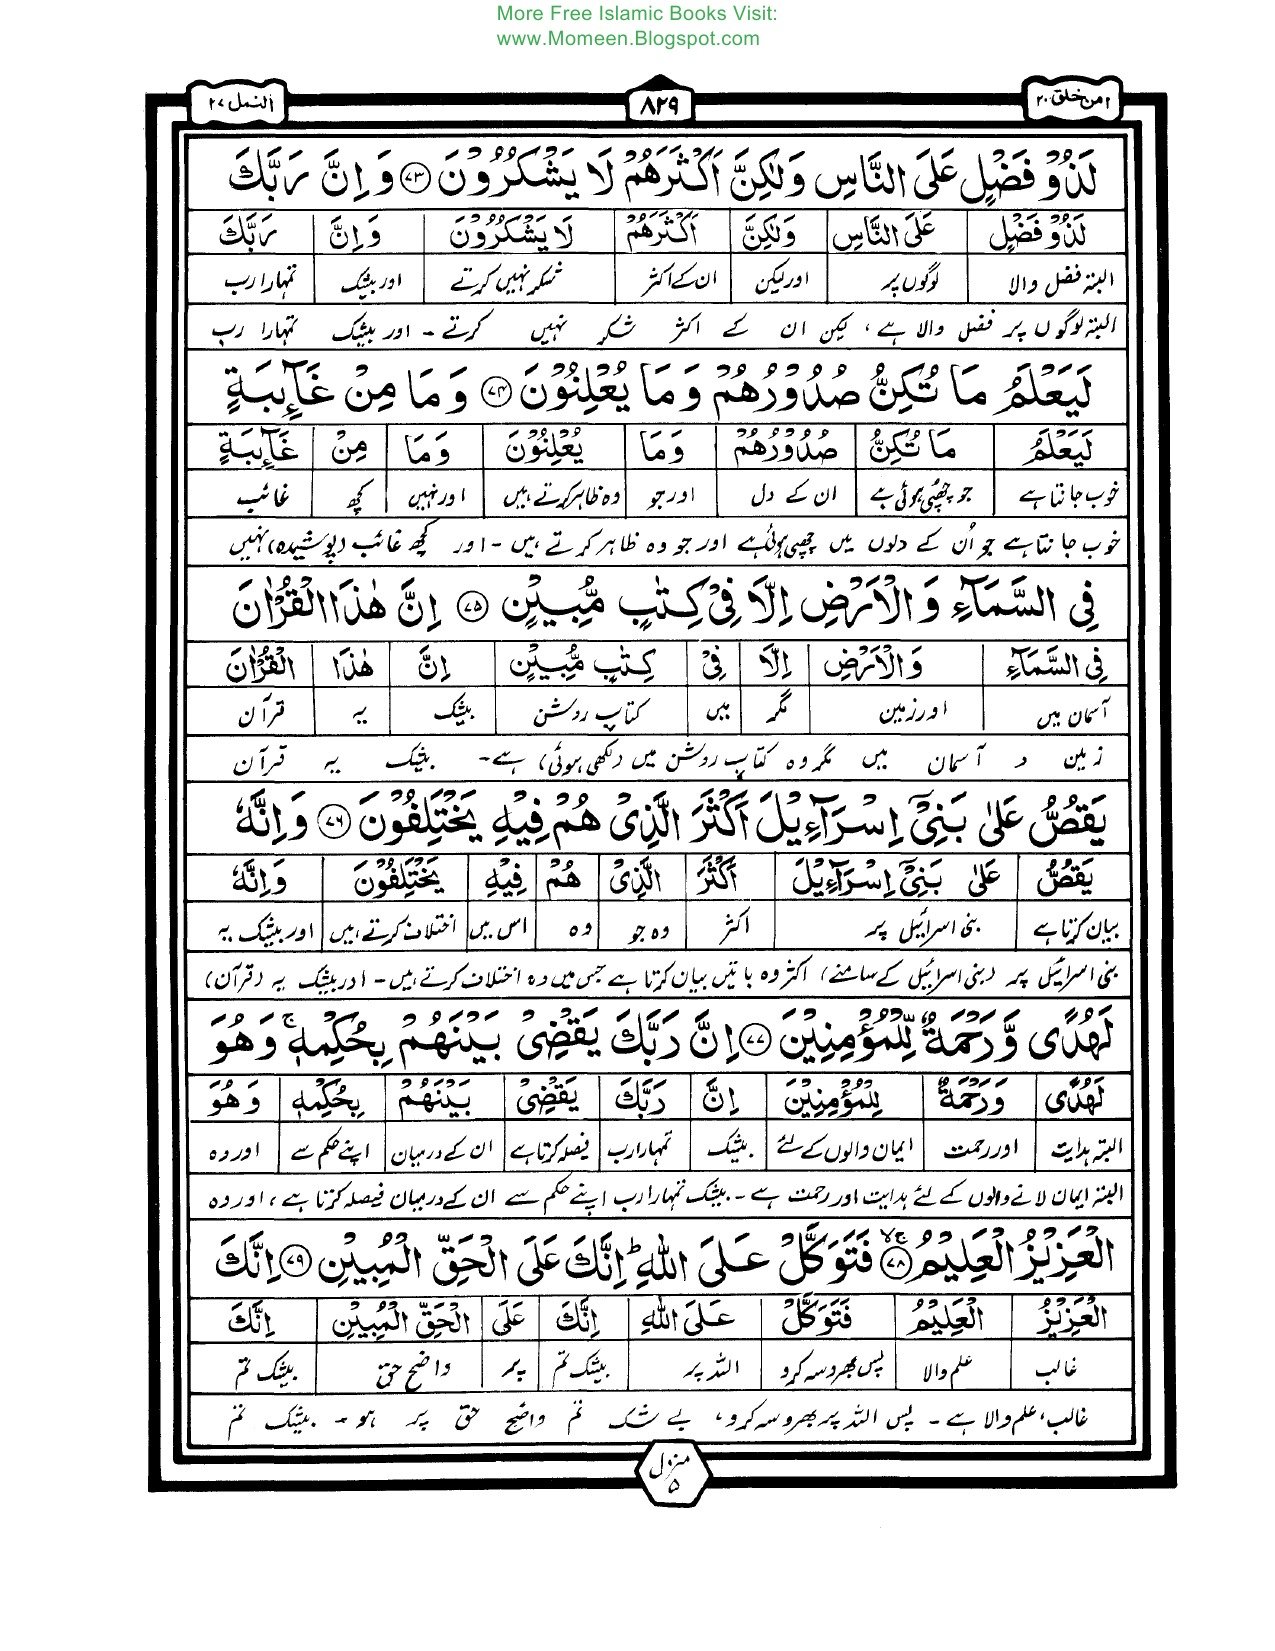 More Free Islamic Books Visit:
www.Momeen.Blogspot.com
امن خلق ۲۰
۸۲۹
النمل ۲۷
لَذُوْ فَضْلٍ عَلَى النَّاسِ وَلٰكِنَّ اَكْثَرَهُمْ لَا يَشْكُرُوْنَ ﴿۷۳﴾ وَاِنَّ رَبَّكَ
لَذُوْ فَضْلٍ عَلَى النَّاسِ وَلٰكِنَّ اَكْثَرَهُمْ لَا يَشْكُرُوْنَ وَاِنَّ رَبَّكَ
البتہ فضل والا لوگوں پر اور لیکن ان کے اکثر شکر نہیں کرتے اور بیشک تمہارا رب
البتہ لوگوں پر فضل والا ہے، لیکن ان کے اکثر شکر نہیں کرتے - اور بیشک تمہارا رب
لَيَعْلَمُ مَا تُكِنُّ صُدُوْرُهُمْ وَمَا يُعْلِنُوْنَ ﴿۷۴﴾ وَمَا مِنْ غَآئِبَةٍ
لَيَعْلَمُ مَا تُكِنُّ صُدُوْرُهُمْ وَمَا يُعْلِنُوْنَ وَمَا مِنْ غَآئِبَةٍ
خوب جانتا ہے جو چھپی ہوئی ہے ان کے دل اور جو وہ ظاہر کرتے ہیں اور نہیں کچھ غائب
خوب جانتا ہے جو اُن کے دلوں میں چھپی ہوئی ہے اور جو وہ ظاہر کرتے ہیں - اور کچھ غائب (پوشیدہ) نہیں
فِي السَّمَآءِ وَالْاَرْضِ اِلَّا فِيْ كِتٰبٍ مُّبِيْنٍ ﴿۷۵﴾ اِنَّ هٰذَا الْقُرْاٰنَ
فِي السَّمَآءِ وَالْاَرْضِ اِلَّا فِيْ كِتٰبٍ مُّبِيْنٍ اِنَّ هٰذَا الْقُرْاٰنَ
آسمان میں اور زمین مگر میں کتاب روشن بیشک یہ قرآن
زمین و آسمان میں مگر وہ کتاب روشن میں (لکھی ہوئی) ہے - بیشک یہ قرآن
يَقُصُّ عَلٰى بَنِيْٓ اِسْرَآءِيْلَ اَكْثَرَ الَّذِيْ هُمْ فِيْهِ يَخْتَلِفُوْنَ ﴿۷۶﴾ وَاِنَّهٗ
يَقُصُّ عَلٰى بَنِيْٓ اِسْرَآءِيْلَ اَكْثَرَ الَّذِيْ هُمْ فِيْهِ يَخْتَلِفُوْنَ وَاِنَّهٗ
بیان کرتا ہے بنی اسرائیل پر اکثر وہ جو وہ اس میں اختلاف کرتے ہیں اور بیشک یہ
بنی اسرائیل پر (بنی اسرائیل کے سامنے) اکثر وہ باتیں بیان کرتا ہے جس میں وہ اختلاف کرتے ہیں - اور بیشک یہ (قرآن)
لَهُدًى وَّرَحْمَةٌ لِّلْمُؤْمِنِيْنَ ﴿۷۷﴾ اِنَّ رَبَّكَ يَقْضِيْ بَيْنَهُمْ بِحُكْمِهٖ ۚ وَهُوَ
لَهُدًى وَرَحْمَةٌ لِلْمُؤْمِنِيْنَ اِنَّ رَبَّكَ يَقْضِيْ بَيْنَهُمْ بِحُكْمِهٖ وَهُوَ
البتہ ہدایت اور رحمت ایمان والوں کے لئے بیشک تمہارا رب فیصلہ کرتا ہے ان کے درمیان اپنے حکم سے اور وہ
البتہ ایمان لانے والوں کے لئے ہدایت اور رحمت ہے - بیشک تمہارا رب اپنے حکم سے ان کے درمیان فیصلہ کرتا ہے، اور وہ
الْعَزِيْزُ الْعَلِيْمُ ﴿۷۸﴾ فَتَوَكَّلْ عَلَى اللّٰهِ ؕ اِنَّكَ عَلَى الْحَقِّ الْمُبِيْنِ ﴿۷۹﴾ اِنَّكَ
الْعَزِيْزُ الْعَلِيْمُ فَتَوَكَّلْ عَلَى اللّٰهِ اِنَّكَ عَلَى الْحَقِّ الْمُبِيْنِ اِنَّكَ
غالب علم والا پس بھروسہ کرو اللہ پر بیشک تم پر واضح حق بیشک تم
غالب، علم والا ہے - پس اللہ پر بھروسہ کرو، بے شک تم واضح حق پر ہو - بیشک تم
منزل ۵